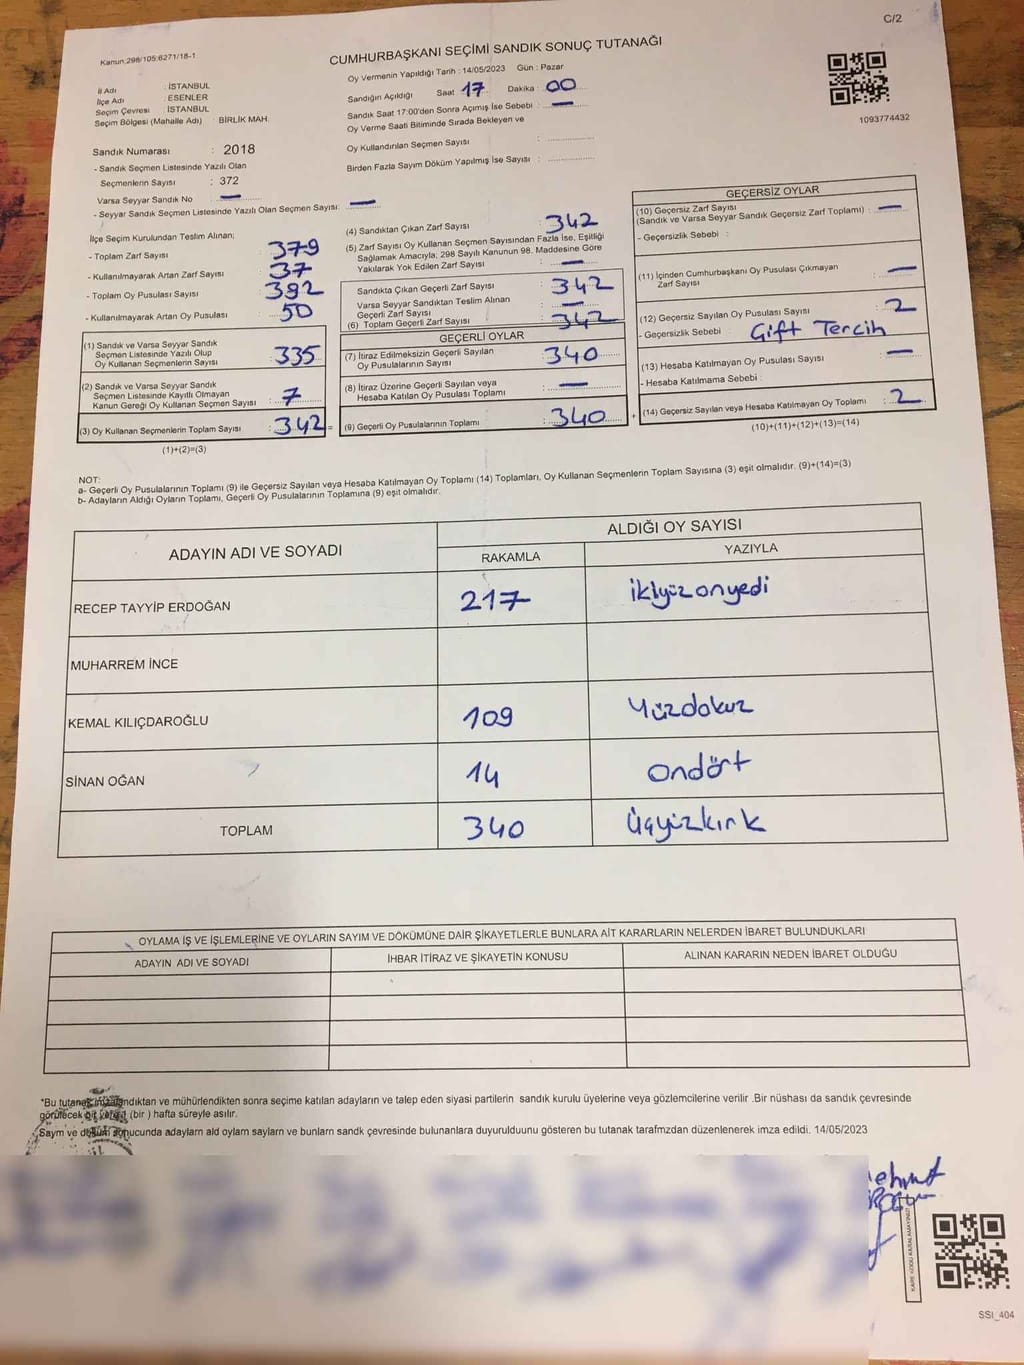 C/2
Kanun:298/105:6271/18-1
CUMHURBAŞKANI SEÇİMİ SANDIK SONUÇ TUTANAĞI
Oy Vermenin Yapıldığı Tarih : 14/05/2023 Gün : Pazar
İl Adı : İSTANBUL
İlçe Adı : ESENLER
Seçim Çevresi : İSTANBUL
Seçim Bölgesi (Mahalle Adı) : BİRLİK MAH.
Sandığın Açıldığı Saat 17 Dakika : 00
Sandık Saat 17:00'den Sonra Açımış İse Sebebi : —
Oy Verme Saati Bitiminde Sırada Bekleyen ve
Oy Kullandırılan Seçmen Sayısı :
Birden Fazla Sayım Döküm Yapılmış İse Sayısı :
1093774432
Sandık Numarası : 2018
- Sandık Seçmen Listesinde Yazılı Olan
Seçmenlerin Sayısı : 372
Varsa Seyyar Sandık No —
- Seyyar Sandık Seçmen Listesinde Yazılı Olan Seçmen Sayısı: —
İlçe Seçim Kurulundan Teslim Alınan;
- Toplam Zarf Sayısı : 379
- Kullanılmayarak Artan Zarf Sayısı : 37
- Toplam Oy Pusulası Sayısı : 392
- Kullanılmayarak Artan Oy Pusulası : 50
(1) Sandık ve Varsa Seyyar Sandık
Seçmen Listesinde Yazılı Olup
Oy Kullanan Seçmenlerin Sayısı : 335
(2) Sandık ve Varsa Seyyar Sandık
Seçmen Listesinde Kayıtlı Olmayan
Kanun Gereği Oy Kullanan Seçmen Sayısı : 7
(3) Oy Kullanan Seçmenlerin Toplam Sayısı : 342 =
(1)+(2)=(3)
(4) Sandıktan Çıkan Zarf Sayısı : 342
(5) Zarf Sayısı Oy Kullanan Seçmen Sayısından Fazla İse, Eşitliği
Sağlamak Amacıyla; 298 Sayılı Kanunun 98. Maddesine Göre
Yakılarak Yok Edilen Zarf Sayısı : —
Sandıkta Çıkan Geçerli Zarf Sayısı : 342
Varsa Seyyar Sandıktan Teslim Alınan
Geçerli Zarf Sayısı : —
(6) Toplam Geçerli Zarf Sayısı : 342
GEÇERLİ OYLAR
(7) İtiraz Edilmeksizin Geçerli Sayılan
Oy Pusulalarının Sayısı : 340
(8) İtiraz Üzerine Geçerli Sayılan veya
Hesaba Katılan Oy Pusulası Toplamı : —
(9) Geçerli Oy Pusulalarının Toplamı : 340 +
GEÇERSİZ OYLAR
(10) Geçersiz Zarf Sayısı
(Sandık ve Varsa Seyyar Sandık Geçersiz Zarf Toplamı) : —
- Geçersizlik Sebebi :
(11) İçinden Cumhurbaşkanı Oy Pusulası Çıkmayan
Zarf Sayısı : —
(12) Geçersiz Sayılan Oy Pusulası Sayısı : 2
- Geçersizlik Sebebi : Gift Tercih
(13) Hesaba Katılmayan Oy Pusulası Sayısı : —
- Hesaba Katılmama Sebebi :
(14) Geçersiz Sayılan veya Hesaba Katılmayan Oy Toplamı : 2
(10)+(11)+(12)+(13)=(14)
NOT:
a- Geçerli Oy Pusulalarının Toplamı (9) ile Geçersiz Sayılan veya Hesaba Katılmayan Oy Toplamı (14) Toplamları, Oy Kullanan Seçmenlerin Toplam Sayısına (3) eşit olmalıdır. (9)+(14)=(3)
b- Adayların Aldığı Oyların Toplamı, Geçerli Oy Pusulalarının Toplamına (9) eşit olmalıdır.
ADAYIN ADI VE SOYADI ALDIĞI OY SAYISI
RAKAMLA YAZIYLA
RECEP TAYYİP ERDOĞAN 217 ikiyüzonyedi
MUHARREM İNCE
KEMAL KILIÇDAROĞLU 109 Yüzdokuz
SİNAN OĞAN 14 Ondört
TOPLAM 340 Üçyüzkırk
OYLAMA İŞ VE İŞLEMLERİNE VE OYLARIN SAYIM VE DÖKÜMÜNE DAİR ŞİKAYETLERLE BUNLARA AİT KARARLARIN NELERDEN İBARET BULUNDUKLARI
ADAYIN ADI VE SOYADI İHBAR İTİRAZ VE ŞİKAYETİN KONUSU ALINAN KARARIN NEDEN İBARET OLDUĞU
*Bu tutanak imzalandıktan ve mühürlendikten sonra seçime katılan adayların ve talep eden siyasi partilerin sandık kurulu üyelerine veya gözlemcilerine verilir .Bir nüshası da sandık çevresinde
görülecek bir yere (bir ) hafta süreyle asılır.
Saym ve döküm sonucunda adaylarn ald oylarn saylarn ve bunlarn sandk çevresinde bulunanlara duyurulduunu gösteren bu tutanak tarafmzdan düzenlenerek imza edildi. 14/05/2023
SSI_404